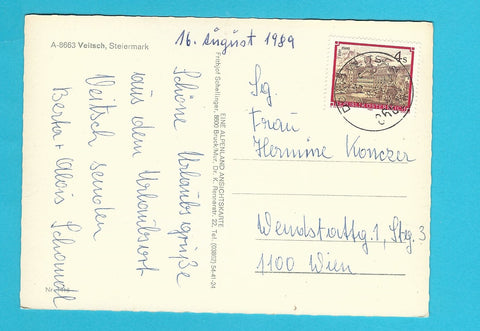 A-8663 Veitsch, Steiermark
16. August 1989
Schöne Urlaubsgrüße
aus dem Urlaubsort
Veitsch senden
Berta + Alois Schandl
EINE ALPENLAND ANSICHTSKARTE
Frithjof Schellinger, 8600 Bruck/Mur, Dr. K. Rennerstr. 22, Tel. (03862) 54-41-24
Nr.
4 S
REPUBLIK ÖSTERREICH
Sg.
Frau
Hermine Konczer
Wendstattg. 1, Stg. 3
1100 Wien